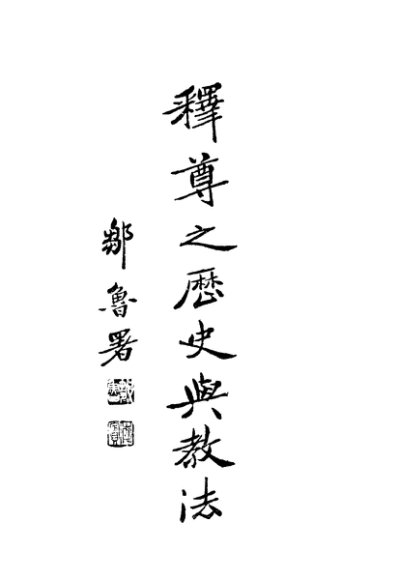 釋尊之歷史與教法
鄒魯署